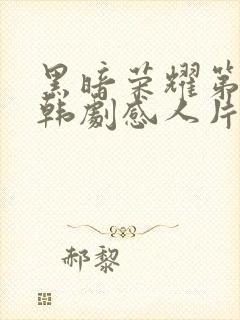 黑暗荣耀第
韩劇感人片
郝黎